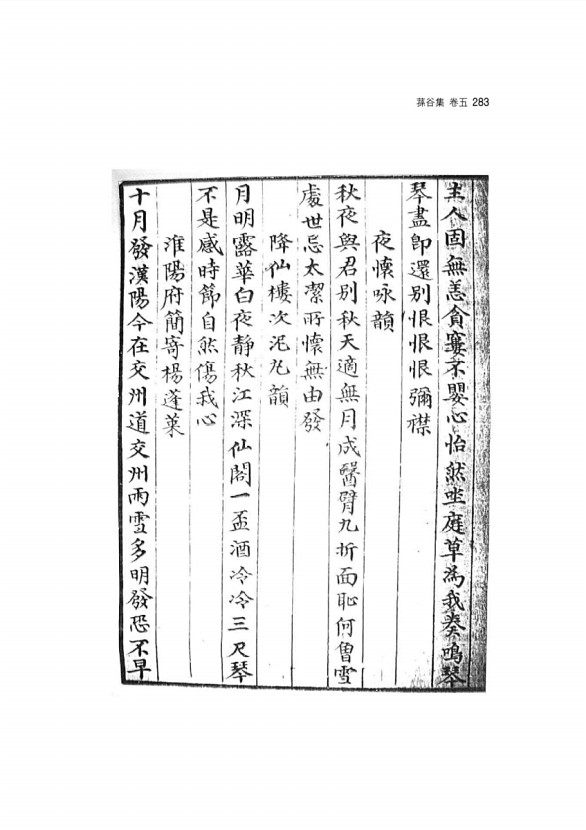 蓀谷集 卷五 283
主人固無恙貪窶不嬰心怡然坐庭草為我奏鳴琴
琴盡卽還別恨恨恨彌襟
夜懷咏韻
秋夜與君別秋天適無月成醫臂九折面恥何曾雪
處世忌太潔所懷無由發
降仙樓次泥丸韻
月明露華白夜靜秋江深仙閣一盃酒冷冷三尺琴
不是感時節自然傷我心
淮陽府簡寄楊蓬萊
十月發漢陽今在交州道交州雨雪多明發恐不早